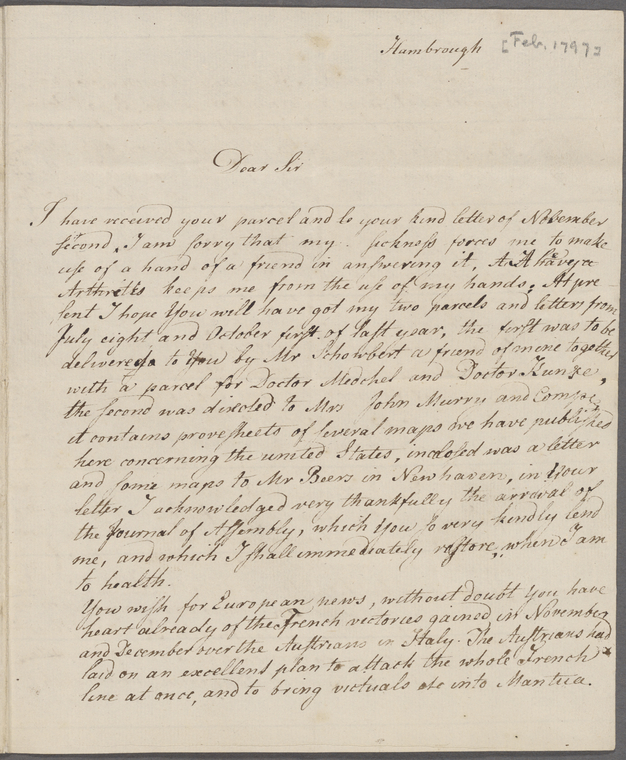 Hambrough [Feb. 1797]
Dear Sir
I have received your parcel and to your kind letter of November
second. I am sorry that my sickness forces me to make
use of a hand of a friend in answering it. A
Arthretis keeps me from the use of my hands. At pre
sent I hope You will have got my two parcels and letters from
July eight and October first of last year, the first was to be
delivered to You by Mr Schowbert a friend of mine together
with a parcel for Doctor Medchel and Doctor Kunze,
the second was directed to Mrs John Murry and Comp.
it contains provesheets of several maps we have published
here concerning the united States, inclosed was a letter
and some maps to Mr Beers in Newhaven, in Your
letter I acknowledged very thankfully the arraval of
the Journal of Assembly, which You so very kindly lend
me, and which I shall immediately restore, when I am
to health.
You wish for European news, without doubt You have
heart already of the French victories gained in November
and December over the Austrians in Italy. The Austrians had
laid on an excellent plan to attack the whole French
line at once, and to bring victuals etc into Mantua.